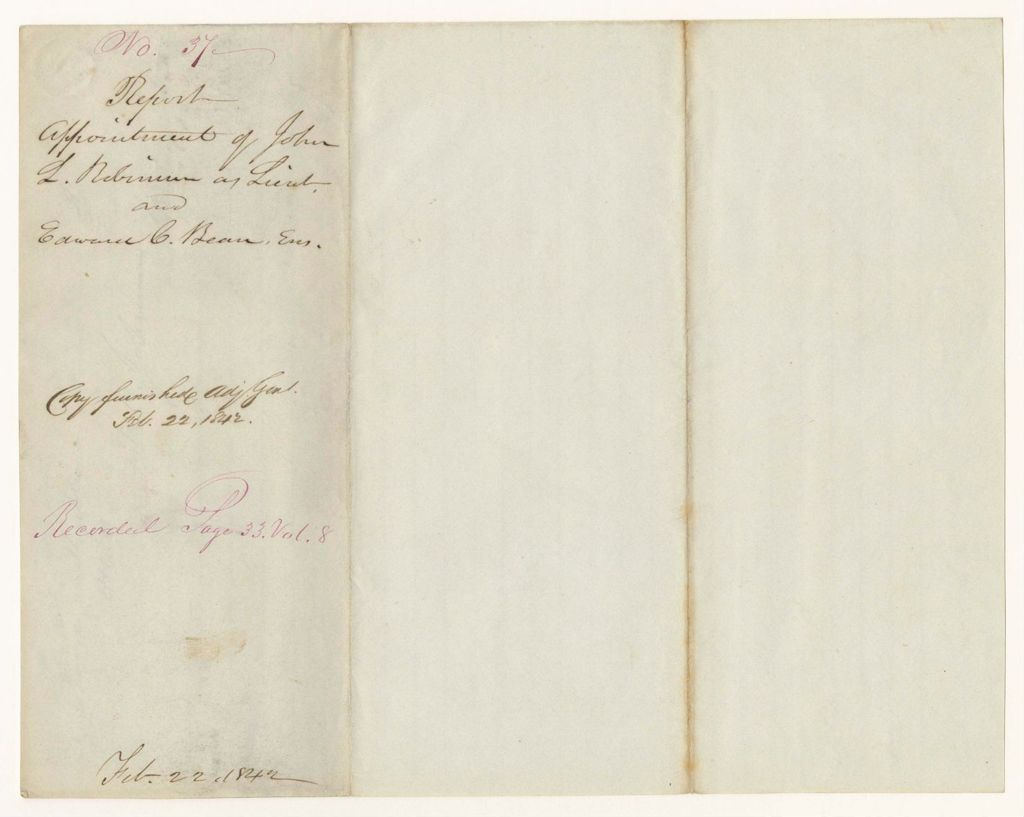 No. 37
Report
Appointment of John
L. Robinson as Lieut.
and
Edward C. Bean, Ens.
Copy furnished Adj Genl.
Feb. 22, 1842.
Recorded Page 33. Vol. 8
Feb. 22, 1842